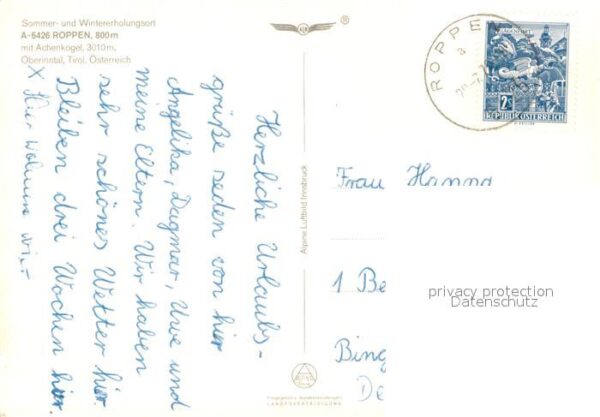 Sommer- und Wintererholungsort
A-6426 ROPPEN, 800m
mit Achenkogel, 3010m,
Oberinntal, Tirol, Österreich
®
ROPPEN
KLAGENFURT
2S
REPUBLIK ÖSTERREICH
Herzliche Urlaubs-
grüße senden von hier
Angelika, Dagmar, Uwe und
meine Eltern. Wir haben
sehr schönes Wetter hier.
Bleiben drei Wochen hier.
X Hier wohnen wir
Alpine Luftbild Innsbruck
Frau Hanna
1 Be
Bing
De
privacy protection
Datenschutz
LANDESVERTEIDIGUNG